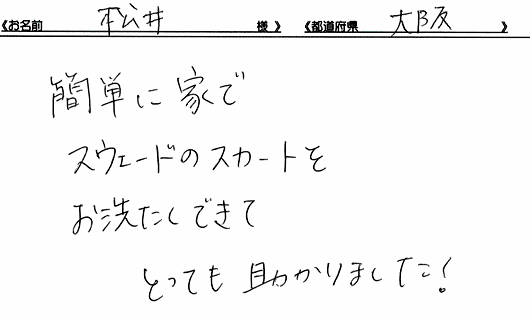 《お名前 松井 様》 《都道府県 大阪 》
簡単に家で
スウェードのスカートを
お洗たくできて
とっても助かりました!